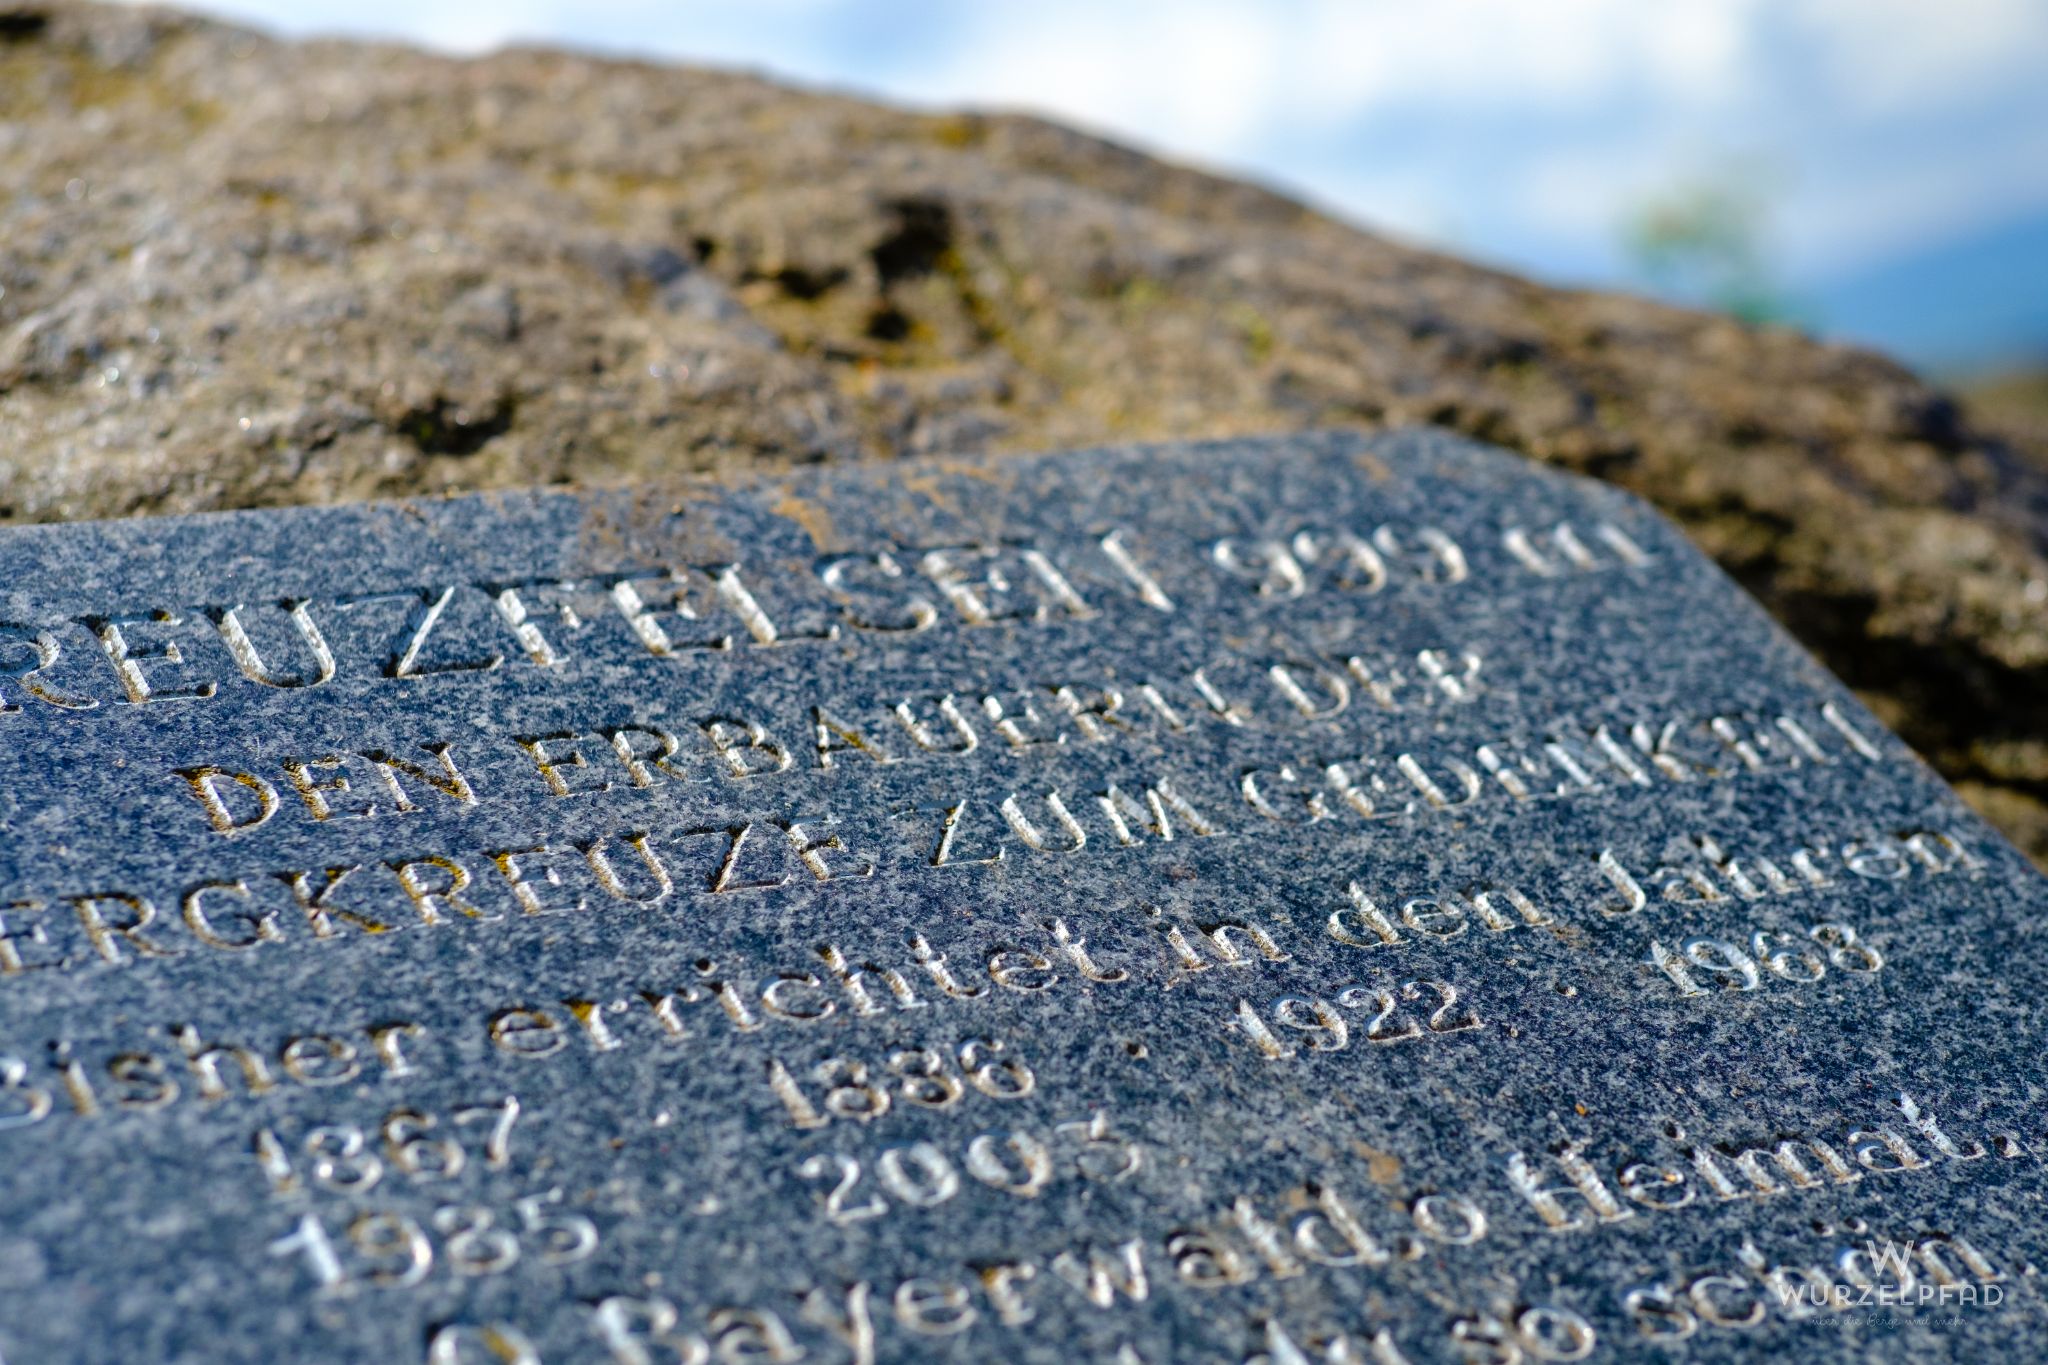 REUZFELSEN 999 m
DEN ERBAUERN DER
ERGKREUZE ZUM GEDENKEN
Bisher errichtet in den Jahren
1867 1886 · 1922 · 1968
1985 2005
O Bayerwald, o Heimat,
so schön
W
WURZELPFAD
über die Berge und mehr